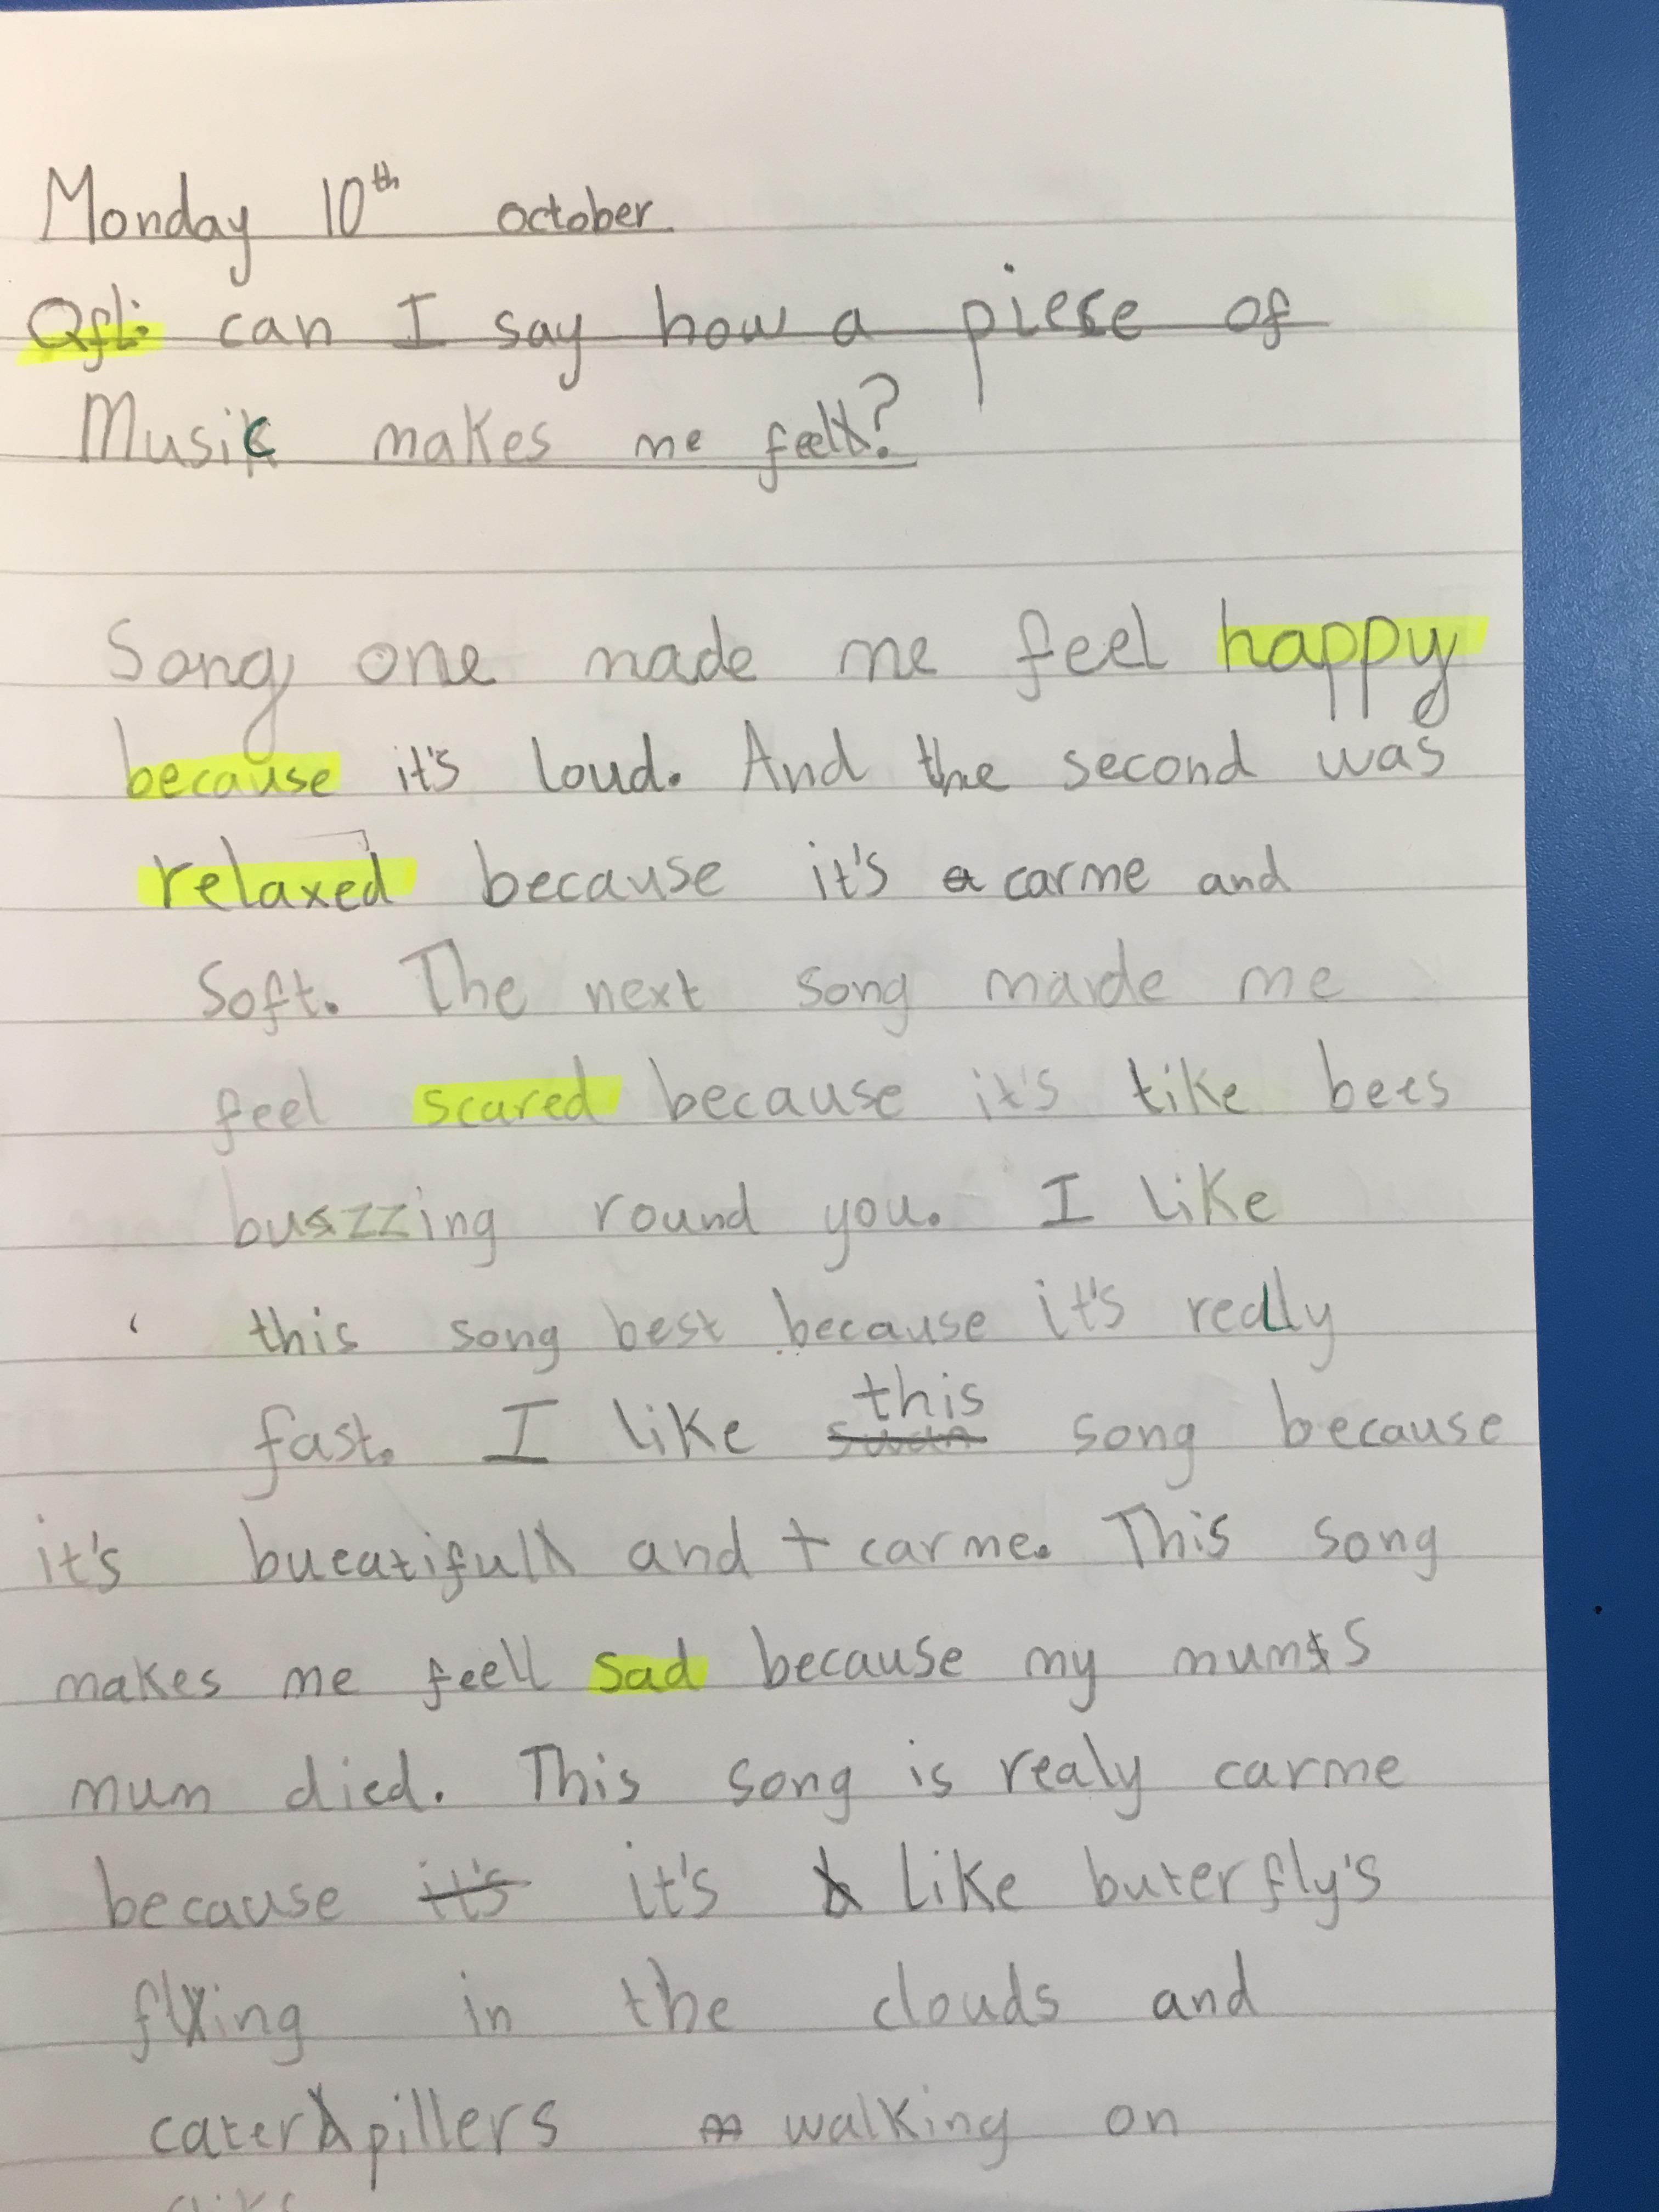 Monday 10th october
Qfl: can I say how a piece of
Music makes me feel?
Song one made me feel happy
because it's loud. And the second was
relaxed because it's carme and
Soft. The next song made me
feel scared because it's like bees
buzzing round you. I like
this song best because it's really
fast. I like this song because
it's bueatiful and carme. This song
makes me feell sad because my mums
mum died. This song is realy carme
because it's like buterfly's
flying in the clouds and
caterpillers walking on